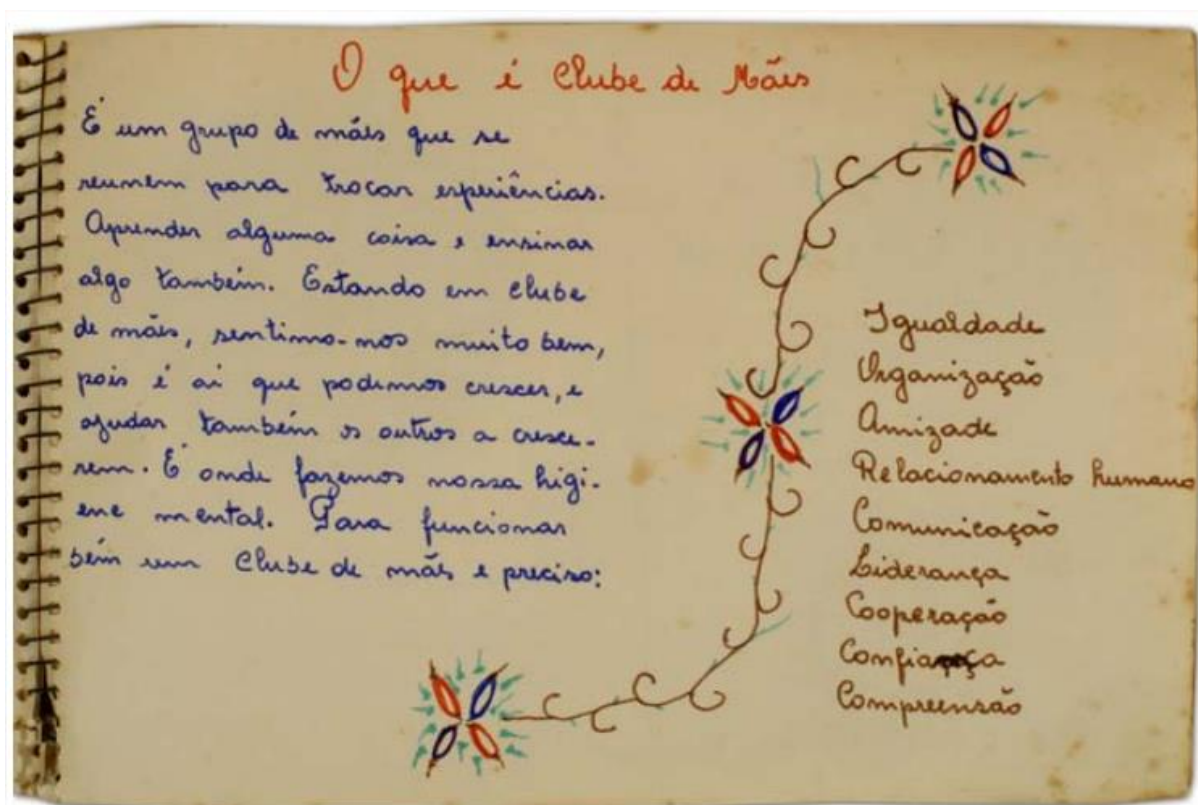 O que é Clube de Mães
É um grupo de mães que se
reunem para trocar experiências.
Aprender alguma coisa e ensinar
algo também. Estando em clube
de mães, sentimo-nos muito bem,
pois é ai que podemos crescer, e
ajudar também os outros a cresce-
rem. É onde fazemos nossa higi-
ene mental. Para funcionar
bém um Clube de mães e preciso:
Igualdade
Organização
Amizade
Relacionamento humano
Comunicação
Liderança
Cooperação
Confiança
Compreensão